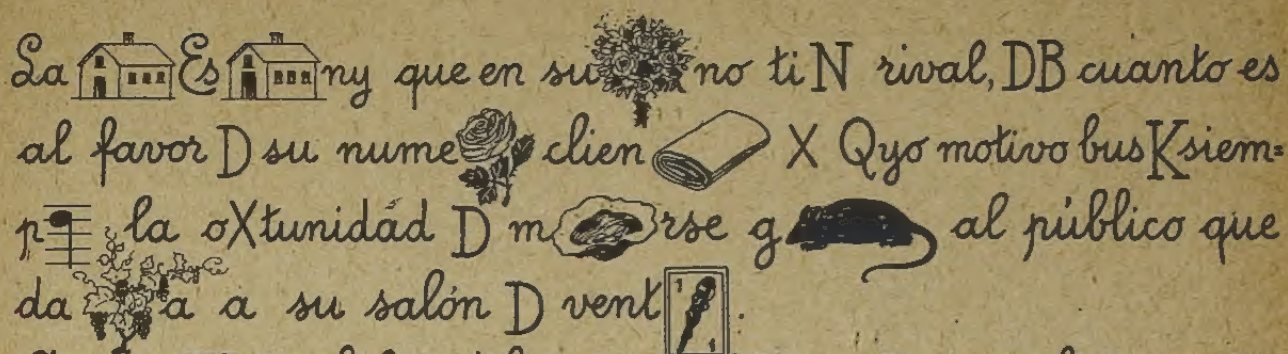 La Es ny que en su no ti N rival, DB cuanto es
al favor D su nume clien X Qyo motivo bus K siem=
p la oXtunidád D m rse g al público que
da a a su salón D vent 1 1.